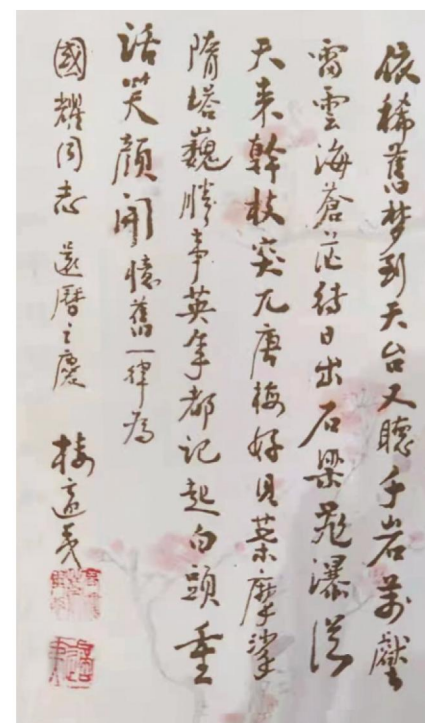 依稀舊梦到天台又聽千岩萬壑
雷雲海蒼茫待日出石梁飛瀑從
天来幹枝突兀唐梅好貝葉摩挲
隋塔巍勝事英年都記起白頭重
話笑顏開 憶舊一律為
國耀同志 還曆之慶
楼適夷